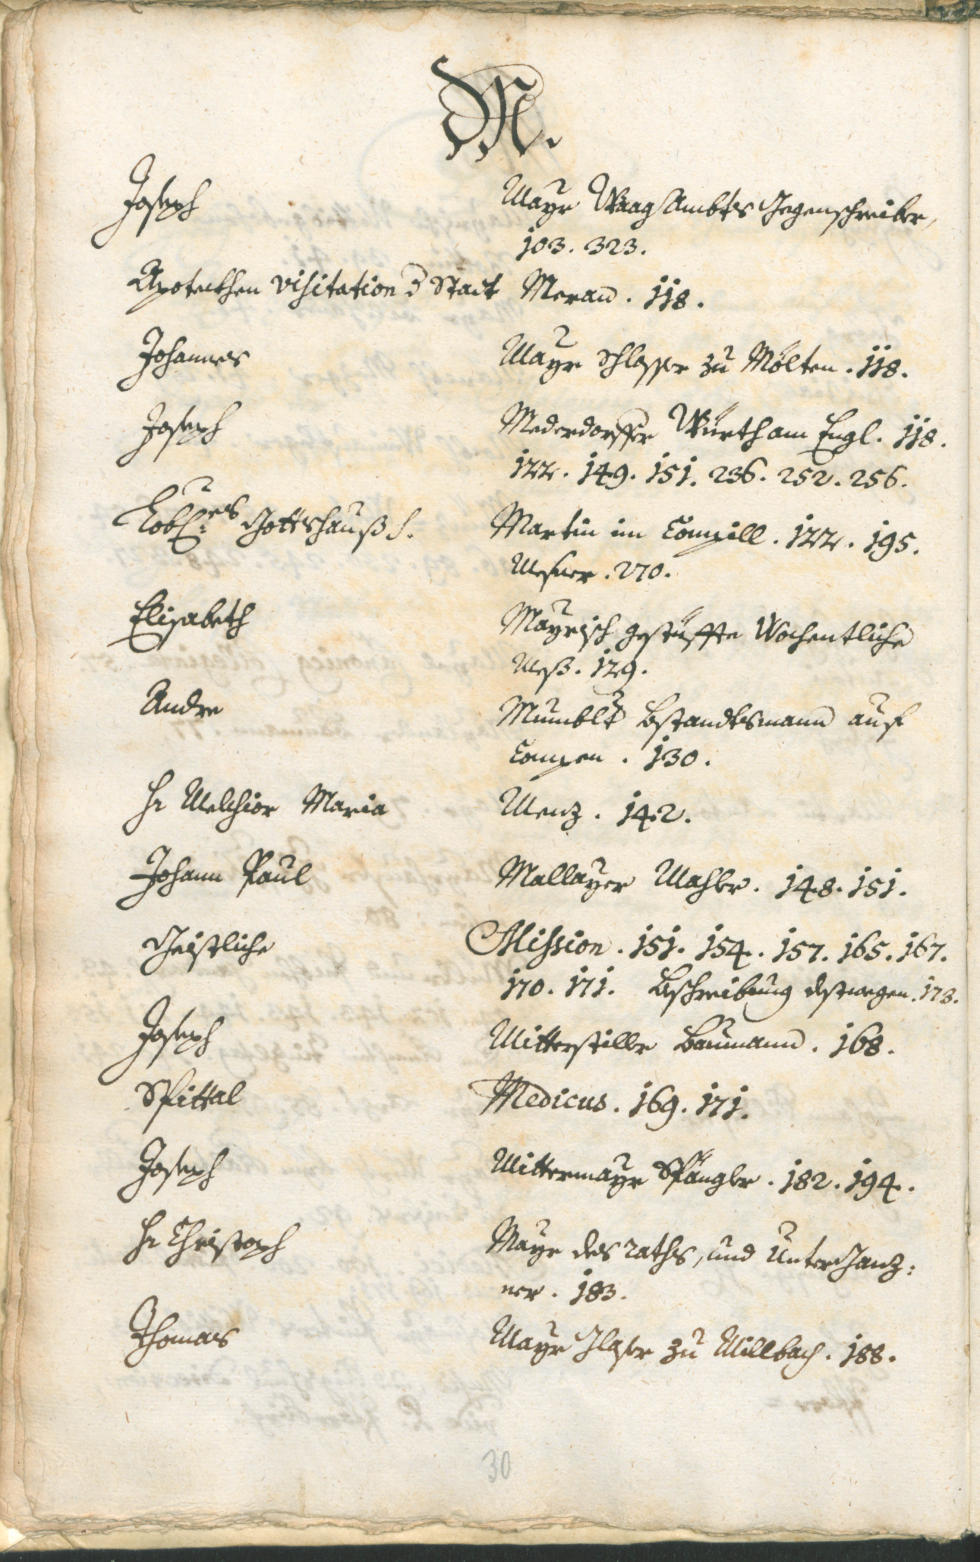 M.
Joseph Mayr Waag Ambts Gegenschreiber,
103. 323.
Apotecken Visitation d Statt Meran. 118.
Johannes Mayr Schlosser zu Mölten. 118.
Joseph Mederdorffer Würth am Engl. 118.
122. 149. 151. 236. 252. 256.
Löbl:es Gottshauß S. Martin im Campill. 122. 195.
Messner. 270.
Elisabeth Mayrisch gestüffte Wochentliche
Mess. 129.
Andre Mumblt Bstandtsmann auf
Campen. 130.
Hr Melchior Maria Menz. 142.
Johann Paul Mallayer Mahler. 148. 151.
Geistliche Mission. 151. 154. 157. 165. 167.
170. 171. Bschreibung desswegen. 173.
Joseph Mitterstiller Baumann. 168.
Spittal Medicus. 169. 171.
Joseph Mittermayr Spängler. 182. 194.
Hr Christoph Mayr des raths, und Unterganz:
ner. 183.
Thomas Mayr Glaser zu Millbach. 188.
30